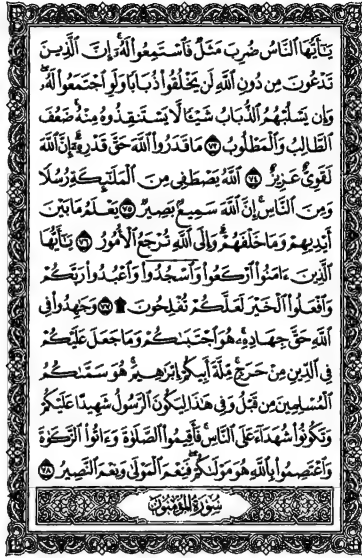 يَـٰٓأَيُّهَا ٱلنَّاسُ ضُرِبَ مَثَلٌ فَٱسْتَمِعُوا۟ لَهُۥٓ ۚ إِنَّ ٱلَّذِينَ
تَدْعُونَ مِن دُونِ ٱللَّهِ لَن يَخْلُقُوا۟ ذُبَابًا وَلَوِ ٱجْتَمَعُوا۟ لَهُۥ ۖ
وَإِن يَسْلُبْهُمُ ٱلذُّبَابُ شَيْـًٔا لَّا يَسْتَنقِذُوهُ مِنْهُ ۚ ضَعُفَ
ٱلطَّالِبُ وَٱلْمَطْلُوبُ ٧٣ مَا قَدَرُوا۟ ٱللَّهَ حَقَّ قَدْرِهِۦٓ ۗ إِنَّ ٱللَّهَ
لَقَوِىٌّ عَزِيزٌ ٧٤ ٱللَّهُ يَصْطَفِى مِنَ ٱلْمَلَـٰٓئِكَةِ رُسُلًا
وَمِنَ ٱلنَّاسِ ۚ إِنَّ ٱللَّهَ سَمِيعٌۢ بَصِيرٌ ٧٥ يَعْلَمُ مَا بَيْنَ
أَيْدِيهِمْ وَمَا خَلْفَهُمْ ۗ وَإِلَى ٱللَّهِ تُرْجَعُ ٱلْأُمُورُ ٧٦ يَـٰٓأَيُّهَا
ٱلَّذِينَ ءَامَنُوا۟ ٱرْكَعُوا۟ وَٱسْجُدُوا۟ وَٱعْبُدُوا۟ رَبَّكُمْ
وَٱفْعَلُوا۟ ٱلْخَيْرَ لَعَلَّكُمْ تُفْلِحُونَ ۩ ٧٧ وَجَـٰهِدُوا۟ فِى
ٱللَّهِ حَقَّ جِهَادِهِۦ ۚ هُوَ ٱجْتَبَىٰكُمْ وَمَا جَعَلَ عَلَيْكُمْ
فِى ٱلدِّينِ مِنْ حَرَجٍ ۚ مِّلَّةَ أَبِيكُمْ إِبْرَٰهِيمَ ۚ هُوَ سَمَّىٰكُمُ
ٱلْمُسْلِمِينَ مِن قَبْلُ وَفِى هَـٰذَا لِيَكُونَ ٱلرَّسُولُ شَهِيدًا عَلَيْكُمْ
وَتَكُونُوا۟ شُهَدَآءَ عَلَى ٱلنَّاسِ ۚ فَأَقِيمُوا۟ ٱلصَّلَوٰةَ وَءَاتُوا۟ ٱلزَّكَوٰةَ
وَٱعْتَصِمُوا۟ بِٱللَّهِ هُوَ مَوْلَىٰكُمْ ۖ فَنِعْمَ ٱلْمَوْلَىٰ وَنِعْمَ ٱلنَّصِيرُ ٧٨
سُورَةُ الْمُؤْمِنُونَ